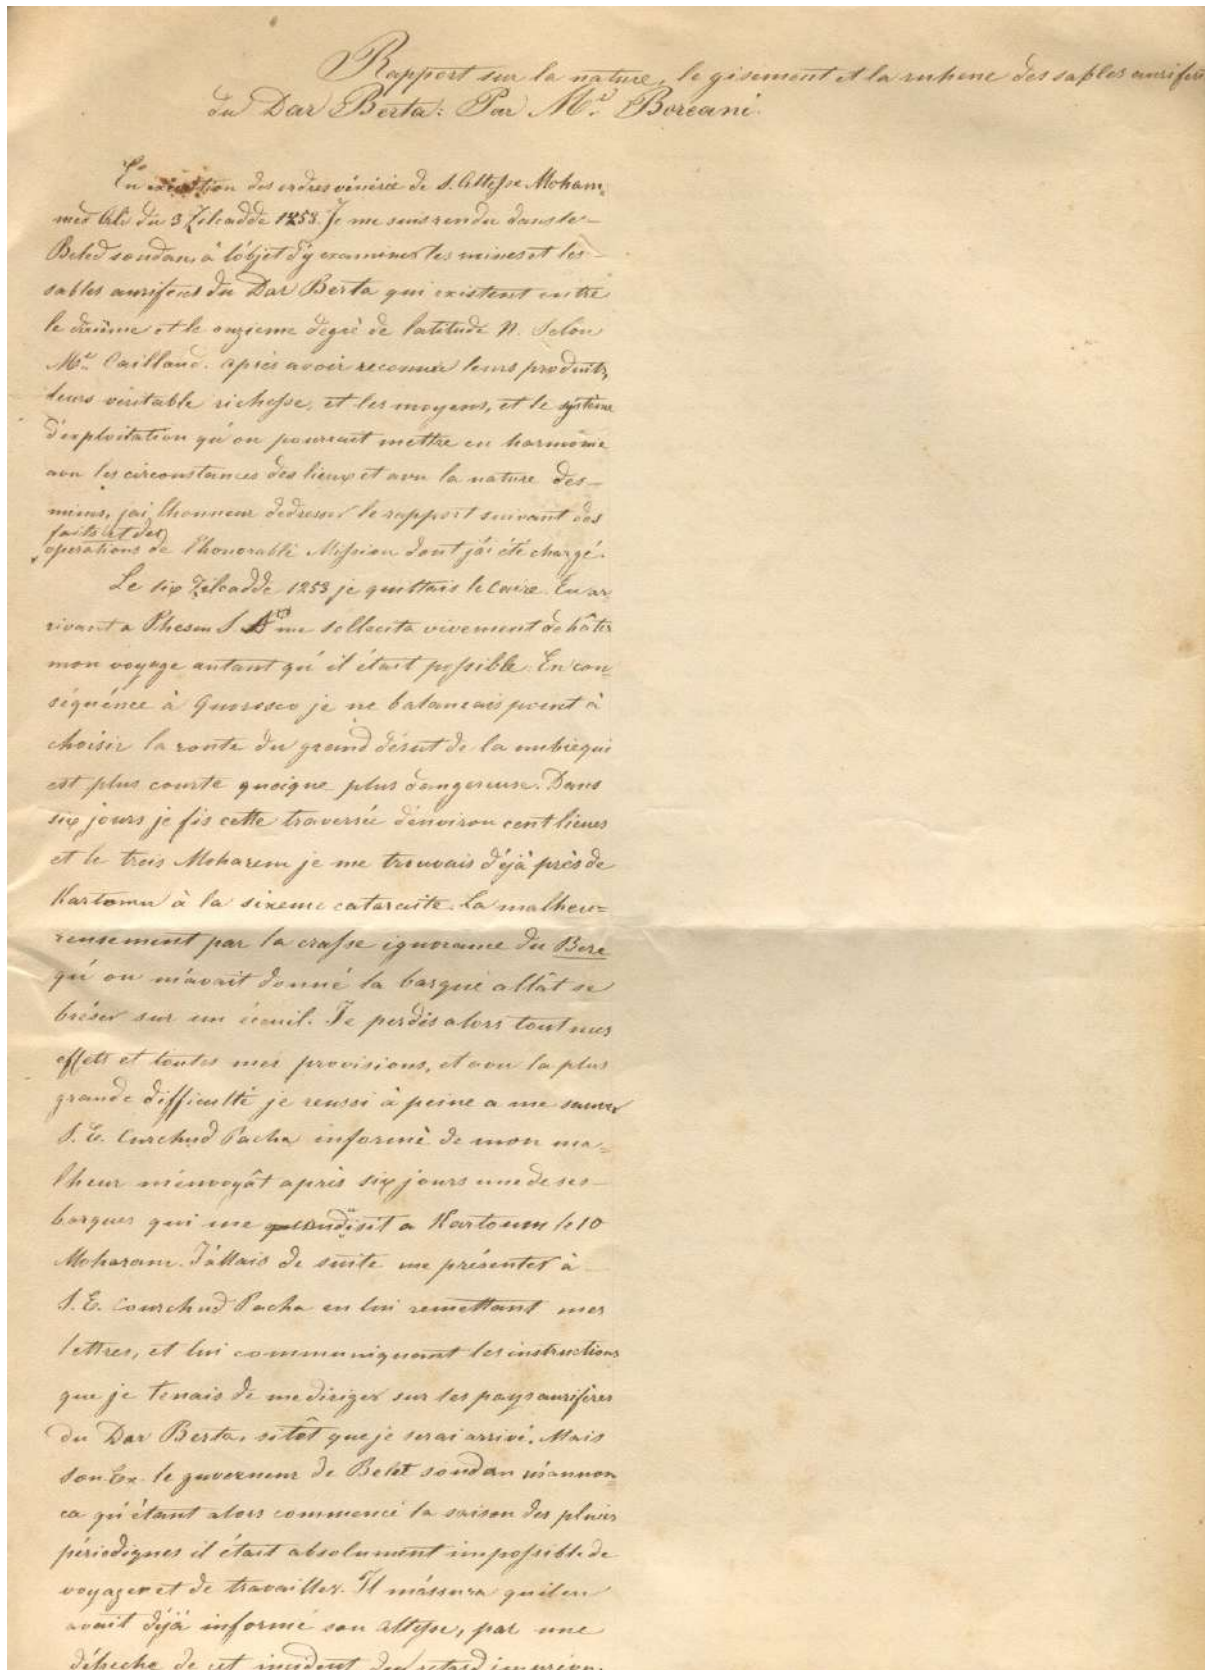 Rapport sur la nature, le gisement et la richesse des sables aurifer
du Dar Berta: Par Mr. Boreani.
En exécution des ordres vénérés de S. Altesse Moham,
med Ali du 3 Zilcadde 1253. Je me suis rendu dans le
Beled soudan, à l'objet d'y examiner les mines et les
sables auriferes du Dar Berta qui existent entre
le dixième et le onzieme degré de latitude N. Selon
Mr. Caillaud. après avoir reconnu leurs produits,
leurs veritable richesse, et les moyens, et le système
d'exploitation qu'on pourrait mettre en harmonie
avec les circonstances des lieux et avec la nature des
mines, j'ai l'honneur d'adresser le rapport suivant des
faits et des
operations de l'honorable Mission dont j'ai été chargé.
Le six Zilcadde 1253 je quittais le Caire. En ar
rivant a S. me sollecita vivement de hâter
mon voyage autant qu'il était possible. En con
séquénce à je ne balancais point à
choisir la route du grand désert de la nubie qui
est plus courte quoique plus dangereuse. Dans
six jours je fis cette traversée d'environ cent lieues
et le trois Moharem je me trouvais déjà près de
Kartoum à la sixeme cataraite. La malheu=
reusement par la crasse ignorance du
qu'on m'avait donné la barque allât se
briser sur un écueil. Je perdis alors tout mes
effets et toutes mes provisions, et avec la plus
grande difficulté je reussi à peine a me sauver
S. E. Curchud Pacha informé de mon ma-
lheur m'envoyât après six jours une de ses
barques qui me a Kartoum le 10
Moharam. J'allais de suite me présenter à
S. E. Courchud Pacha en lui remettant mes
lettres, et lui communiquant les instructions
que je tenais de me diriger sur les pays aurifères
du Dar Berta, sitôt que je serai arrivé. Mais
son Ex. le guverneur de Belet soudan m'annon
ca qu'étant alors commencé la saison des pluies
périodiques il était absolument impossible de
voyager et de travailler. Il m'assura qu'il en
avait déjà informé son Altesse, par une
dépeche de cet incident du retard